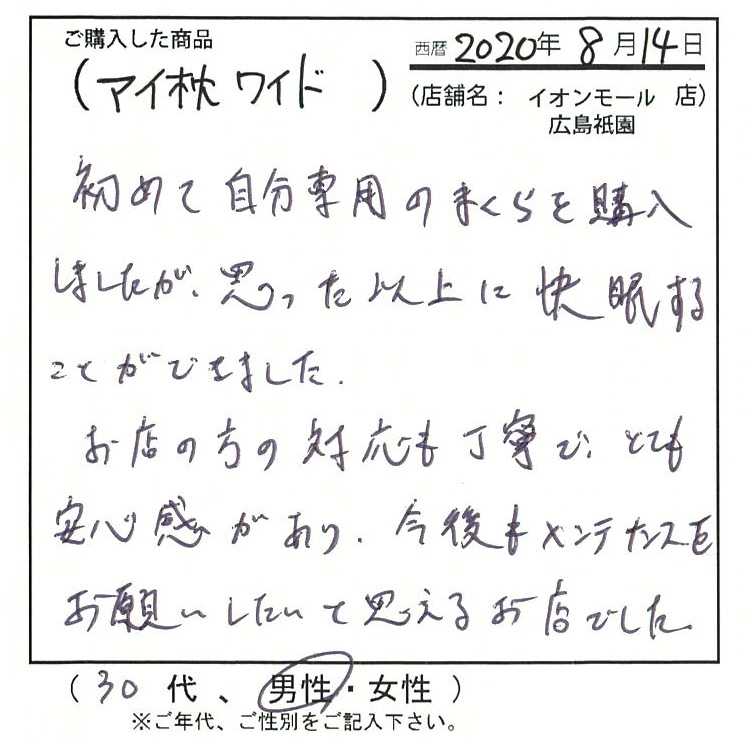 ご購入した商品
西暦 2020年 8月14日
(アイ枕 ワイド )
(店舗名: イオンモール 店)
広島祇園
初めて自分専用のまくらを購入
しましたが、思った以上に快眠する
ことができました.
お店の方の対応も丁寧で、とても
安心感があり、今後もメンテナンスを
お願いしたいと思えるお店でした.
(30 代 、 男性・女性 )
※ご年代、ご性別をご記入下さい。